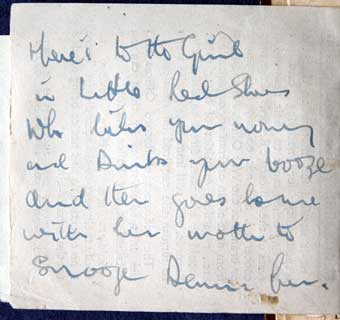 Here's to the Girls
in Little Red Shoes
Who takes your money
and Drinks your booze
And then goes home
with her mother to
Snooze Damn her.